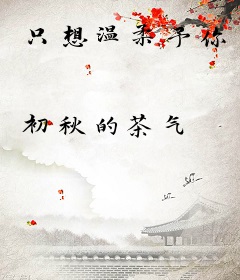 只想温柔予你
初秋的茶气